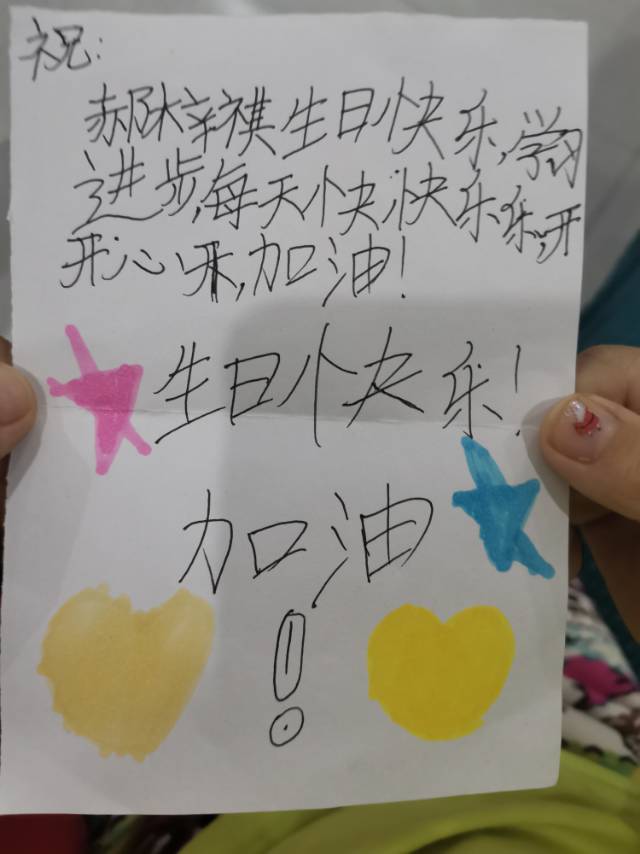 祝:
郝梓祺生日快乐,学习
进步,每天快快乐乐,开
开心,加油!
生日快乐!
加油
!